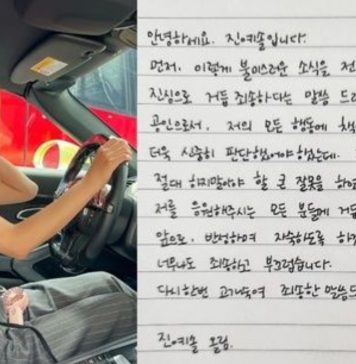 안녕하세요. 진예솔입니다.
먼저, 이렇게 불미스러운 소식을 전
진심으로 거듭 죄송하다는 말씀 드
공인으로서, 저의 모든 행동에 책
더욱 신중히 판단했어야했는데,
절대 하지말아야 할 큰 잘못을 하
저를 응원해주시는 모든 분들께 거듭
앞으로, 반성하며 자숙하도록 하
너무나도 죄송하고 부끄럽습니다.
다시한번 고개숙여 죄송한 말씀드
진예솔 올림.